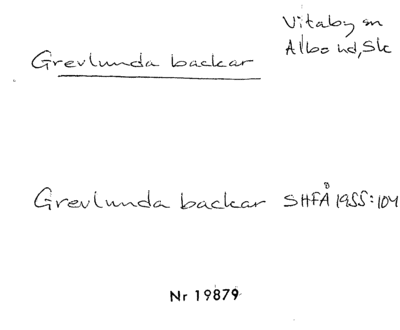 Grevlunda backar
Vitaby sn
Albo hd, Sk
Grevlunda backar SHFÅ 1955:104
Nr 19879